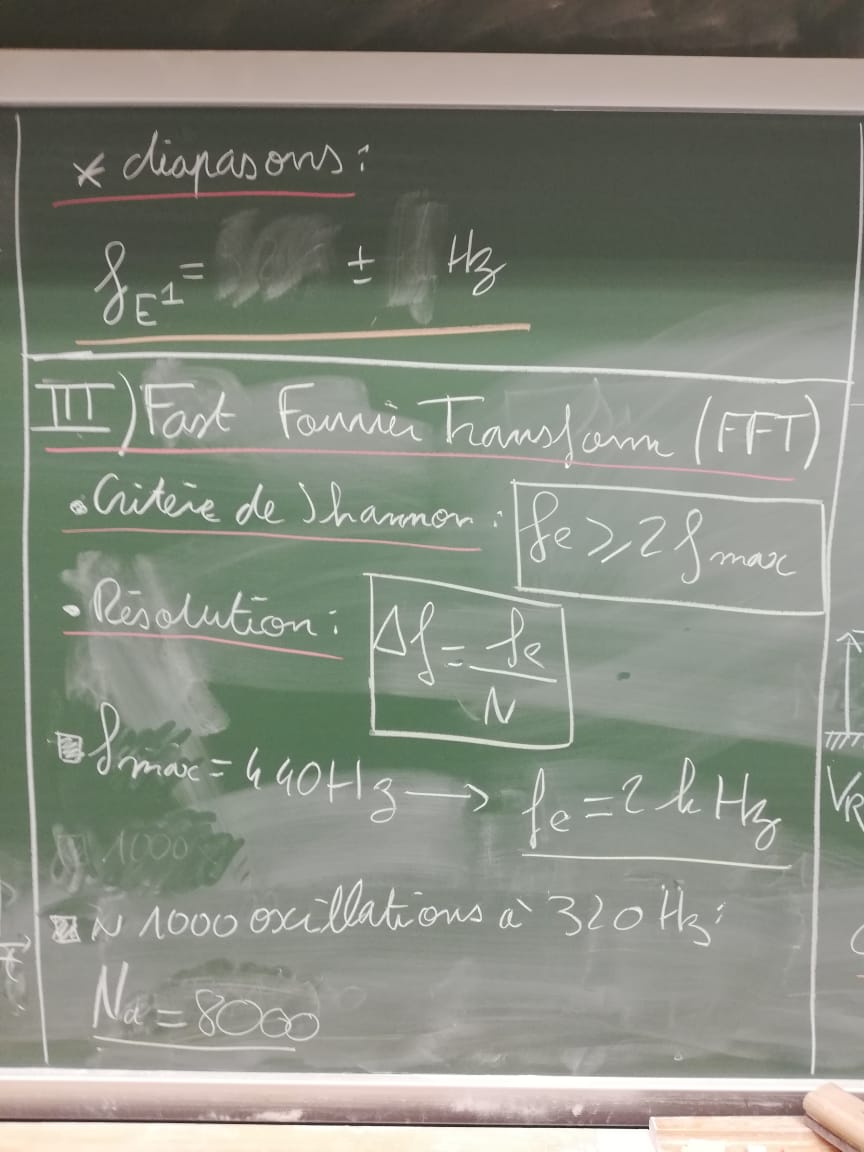 * diapasons :
f_E1 = ± Hz
III) Fast Fourrier Transform (FFT)
• Critère de Shannon : fe ≥ 2 fmax
• Résolution : Δf = fe / N
fmax = 440 Hz → fe = 2 k Hz
~ 1000 oscillations à 320 Hz :
Na = 8000